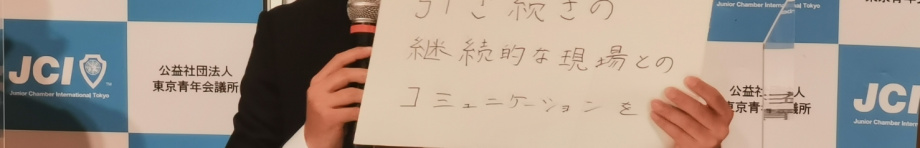 Junior Chamber International Tokyo
引き続きの
継続的な現場との
コミュニケーションを
JCI
Junior Chamber International Tokyo
公益社団法人
東京青年会議所
公益社 人
東京青 議所
JCI
Junior Chamber Inter